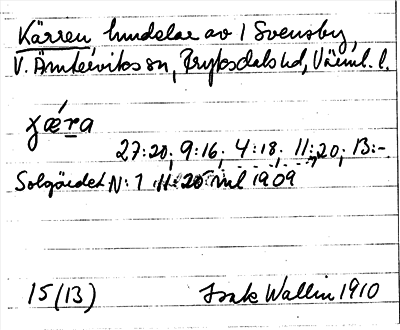 Kärren hundelar av 1 Svensby,
V. Ämterviks sn, Fryksdals hd, Värml. l.
χæ̀ra
27:20; 9:16; 4:18; 11:20; 13:-
Solgärdet N:1 11:20 1909
15 (13) Isak Wallin 1910